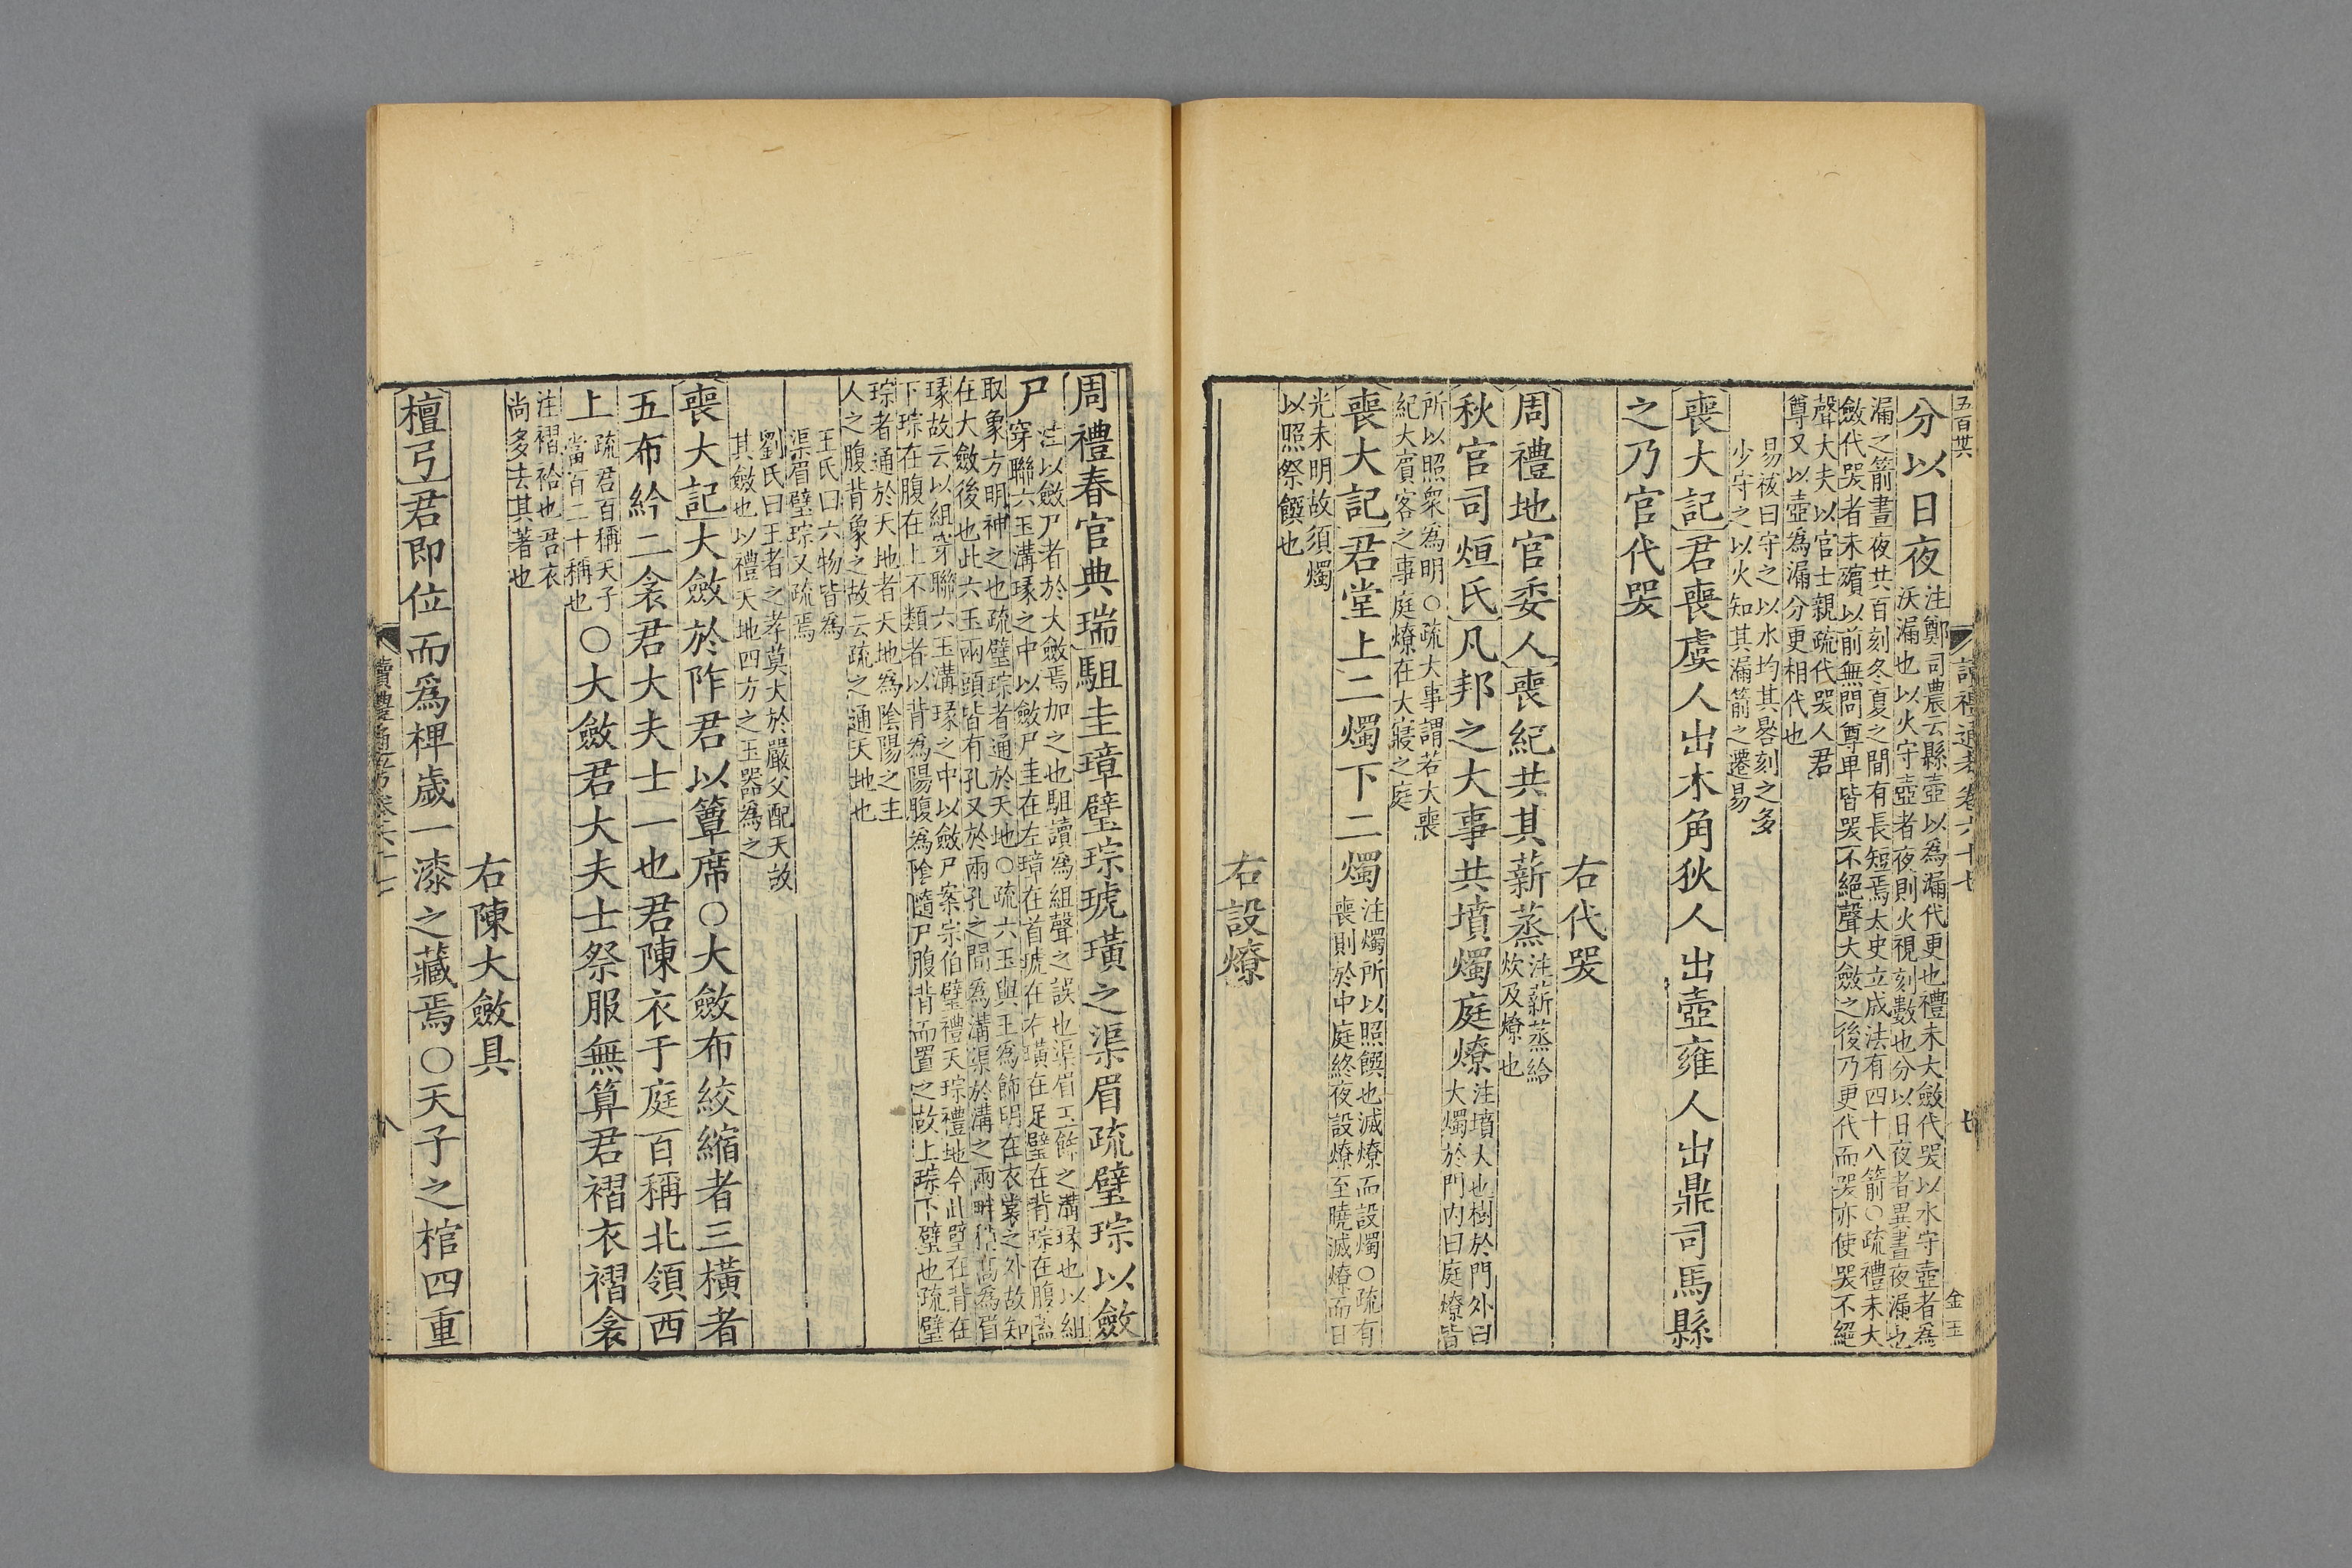 五百
讀禮通考卷六十七
七
金玉
分以日夜
注鄭司農云縣壺以為漏代更也禮未大斂代哭以水守壺者為
沃漏也以火守壺者夜則火視刻數也分以日夜者異晝夜漏也
漏之箭晝夜共百刻冬夏之間有長短焉太史立成法有四十八箭○疏禮未大
斂代哭者未殯以前無問尊卑皆哭不絕聲大斂之後乃更代而哭亦使哭不絕
聲大夫以官士親疏代哭人君
尊又以壺為漏分更相代也
易祓曰守之以水均其晷刻之多
少守之以火知其漏箭之遷易
喪大記君喪虞人出木角狄人出壺雍人出鼎司馬縣
之乃官代哭
右代哭
周禮地官委人喪紀共其薪蒸
注薪蒸給
炊及燎也
秋官司烜氏凡邦之大事共墳燭庭燎
注墳人也樹於門外曰
大燭於門內曰庭燎皆
所以照衆為明○疏大事謂若大喪
紀大賓客之事庭燎在大寢之庭
喪大記君堂上二燭下二燭
注燭所以照饌也滅燎而設燭○疏有
喪則於中庭終夜設燎至曉滅燎而日
光未明故須燭
以照祭饌也
右設燎
周禮春官典瑞駔圭璋璧琮琥璜之渠眉疏璧琮以斂
尸
注以斂尸者於大斂焉加之也駔讀為組聲之誤也渠眉玉飾之溝瑑也以組
穿聯六玉溝瑑之中以斂尸圭在左璋在首琥在右璜在足璧在背琮在腹蓋
取象方明神之也疏璧琮者通於天地○疏六玉與王為飾明在衣裳之外故知
在大斂後也此六玉兩頭皆有孔又於兩孔之間為溝渠於溝之兩畔稍高為眉
瑑故云以組穿聯六玉溝瑑之中以斂尸案宗伯璧禮天琮禮地今此璧在背在
下琮在腹在上不類者以背為陽腹為陰隨尸腹背而置之故上琮下璧也疏璧
琮者通於天地者天地為陰陽之主
人之腹背象之故云疏之通天地也
王氏曰六物皆為
渠眉璧琮又疏焉
劉氏曰王者之孝莫大於嚴父配天故
其斂也以禮天地四方之玉器為之
喪大記大斂於阼君以簟席○大斂布絞縮者三橫者
五布紟二衾君大夫士一也君陳衣于庭百稱北領西
上
疏君百稱天子
當百二十稱也
○大斂君大夫士祭服無算君褶衣褶衾
注褶袷也君衣
尚多去其著也
右陳大斂具
檀弓君即位而為椑歲一漆之藏焉○天子之棺四重
讀禮通考卷六十七
八